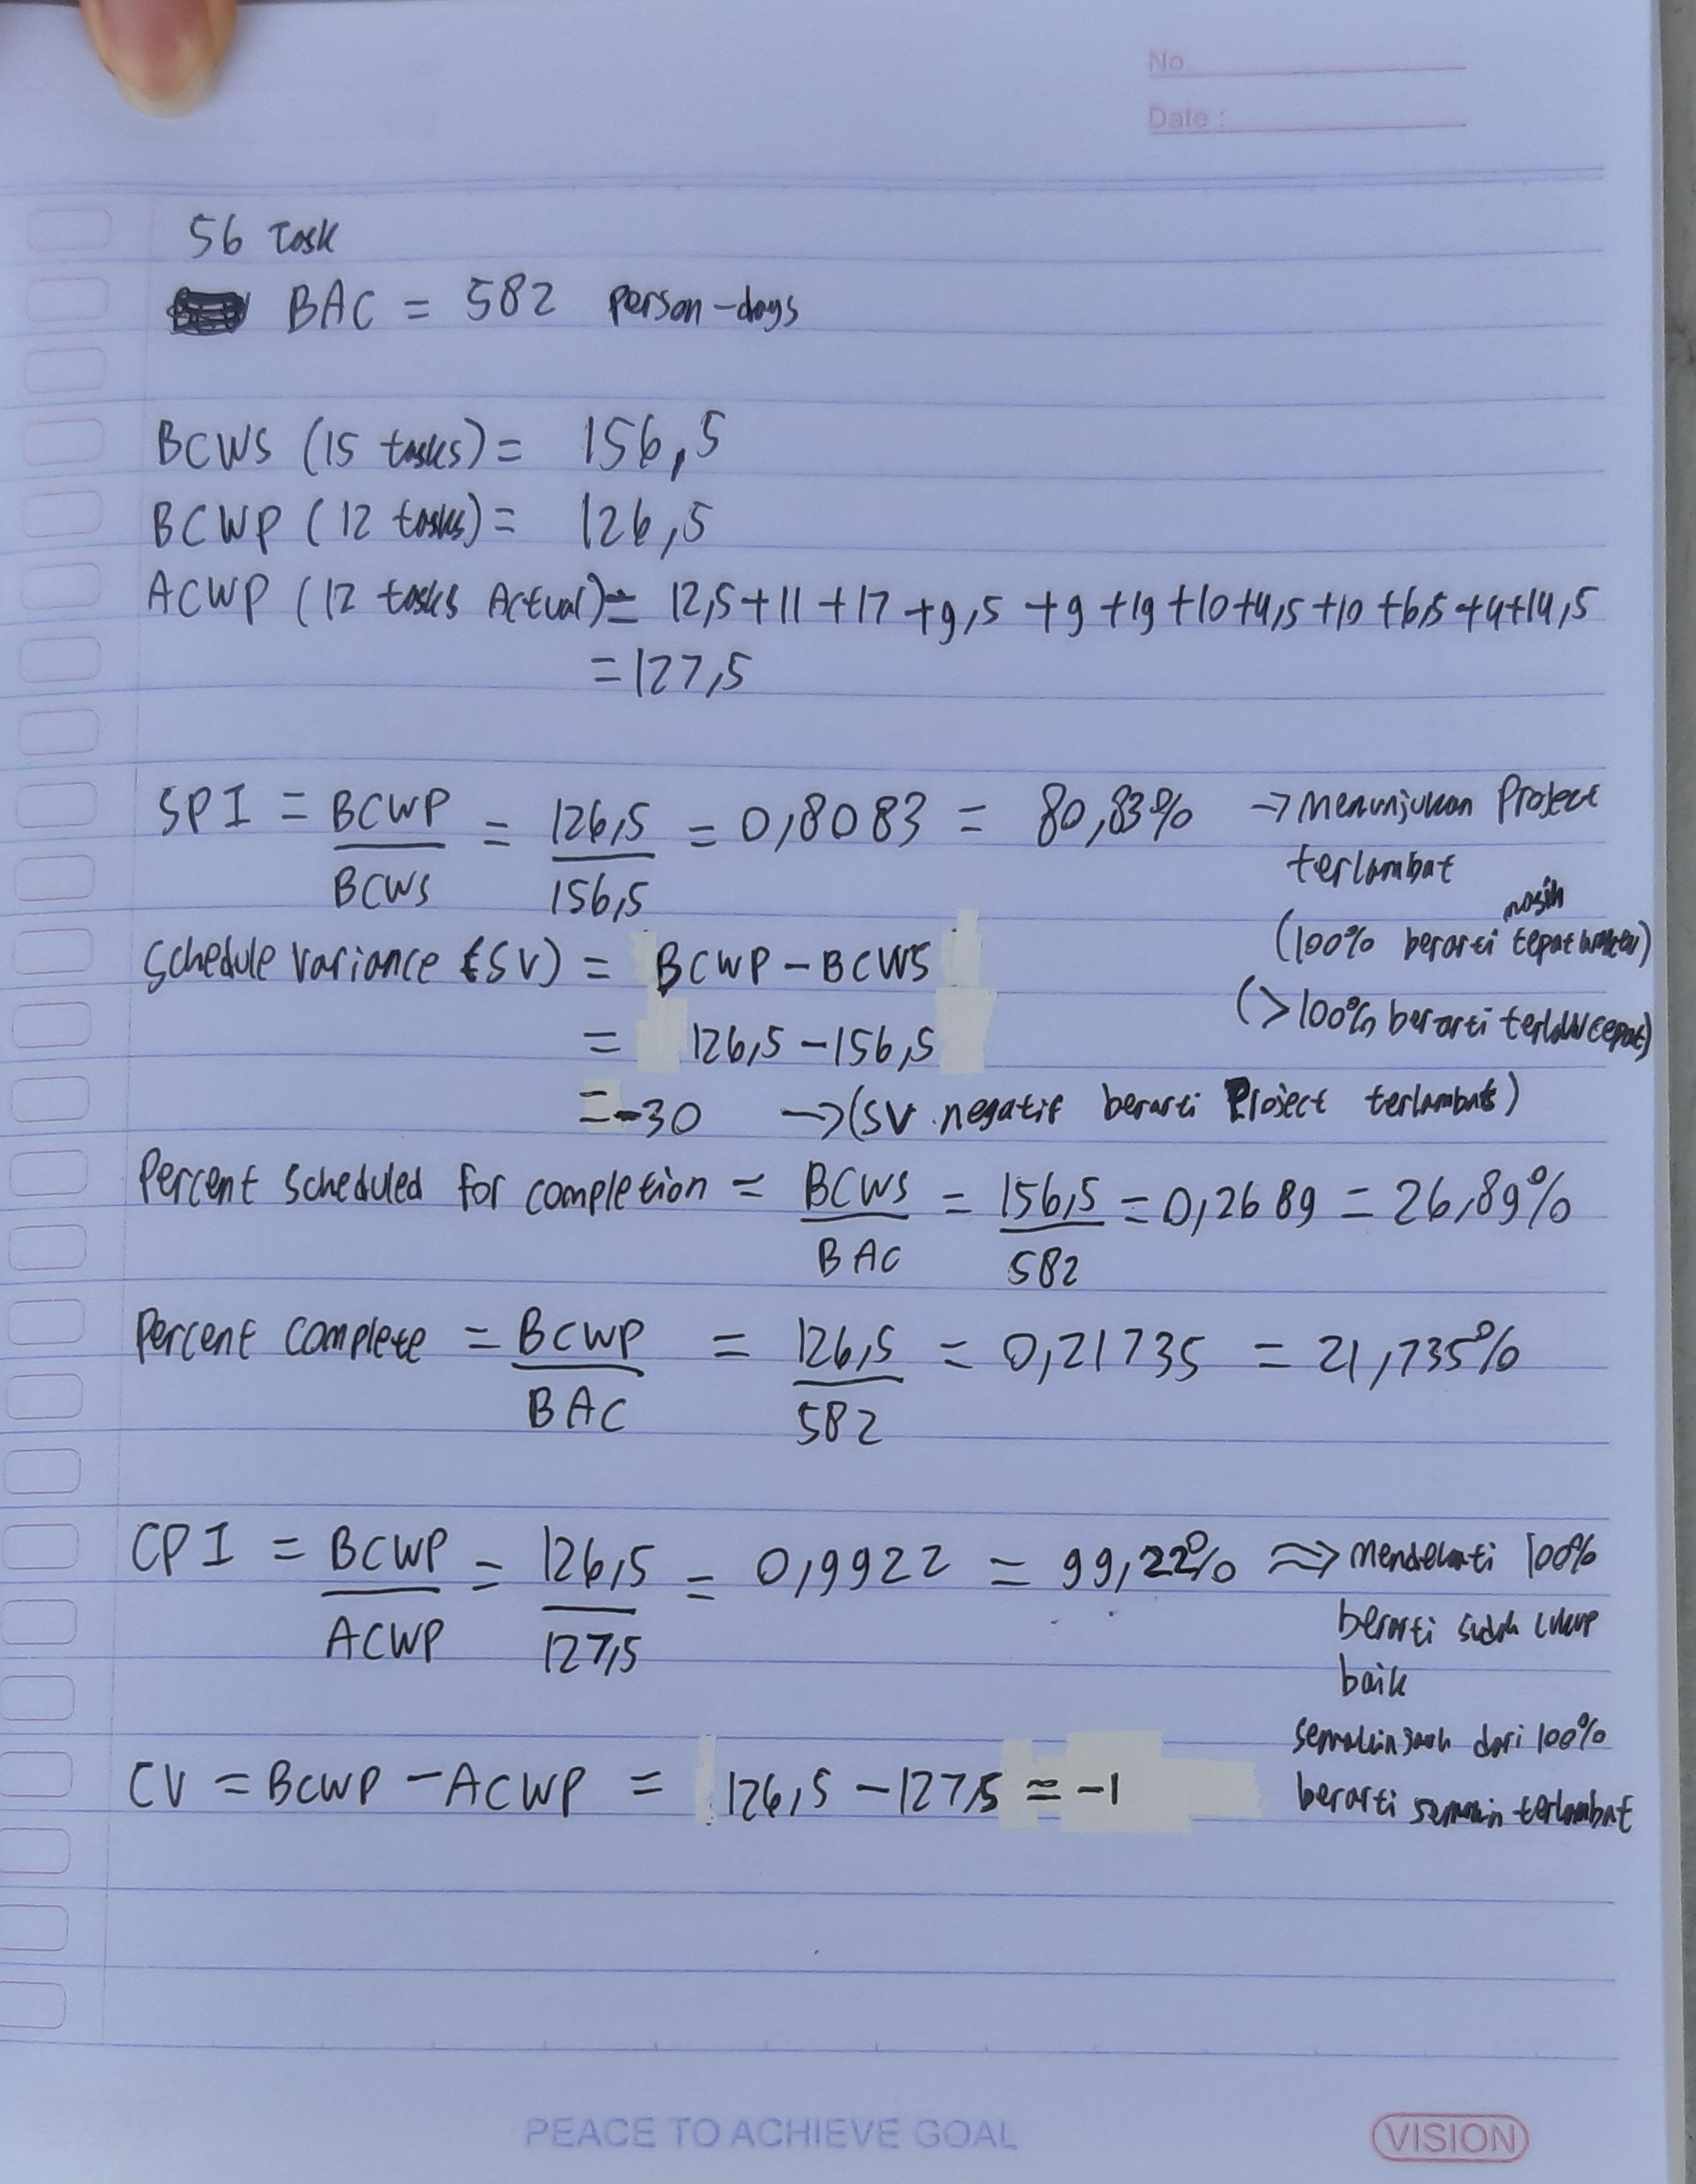 No.
Date :
56 Task
BAC = 582 person-days
BCWS (15 tasks) = 156,5
BCWP (12 tasks) = 126,5
ACWP (12 tasks Actual) = 12,5+11+17+9,5+9+19+10+4,5+10+6,5+4+14,5
= 127,5
SPI = BCWP / BCWS = 126,5 / 156,5 = 0,8083 = 80,83% → Menunjukan Project
terlambat
(100% berarti masih tepat waktu)
(>100% berarti terlalu cepat)
Schedule Variance (SV) = BCWP - BCWS
= 126,5 - 156,5
= -30 → (SV negatif berarti Project terlambat)
Percent Scheduled for completion = BCWS / BAC = 156,5 / 582 = 0,2689 = 26,89%
Percent Complete = BCWP / BAC = 126,5 / 582 = 0,21735 = 21,735%
CPI = BCWP / ACWP = 126,5 / 127,5 = 0,9922 = 99,22% ⇒ Mendekati 100%
berarti sudah cukup
baik
semakin jauh dari 100%
berarti semakin terlambat
CV = BCWP - ACWP = 126,5 - 127,5 = -1
PEACE TO ACHIEVE GOAL
VISION